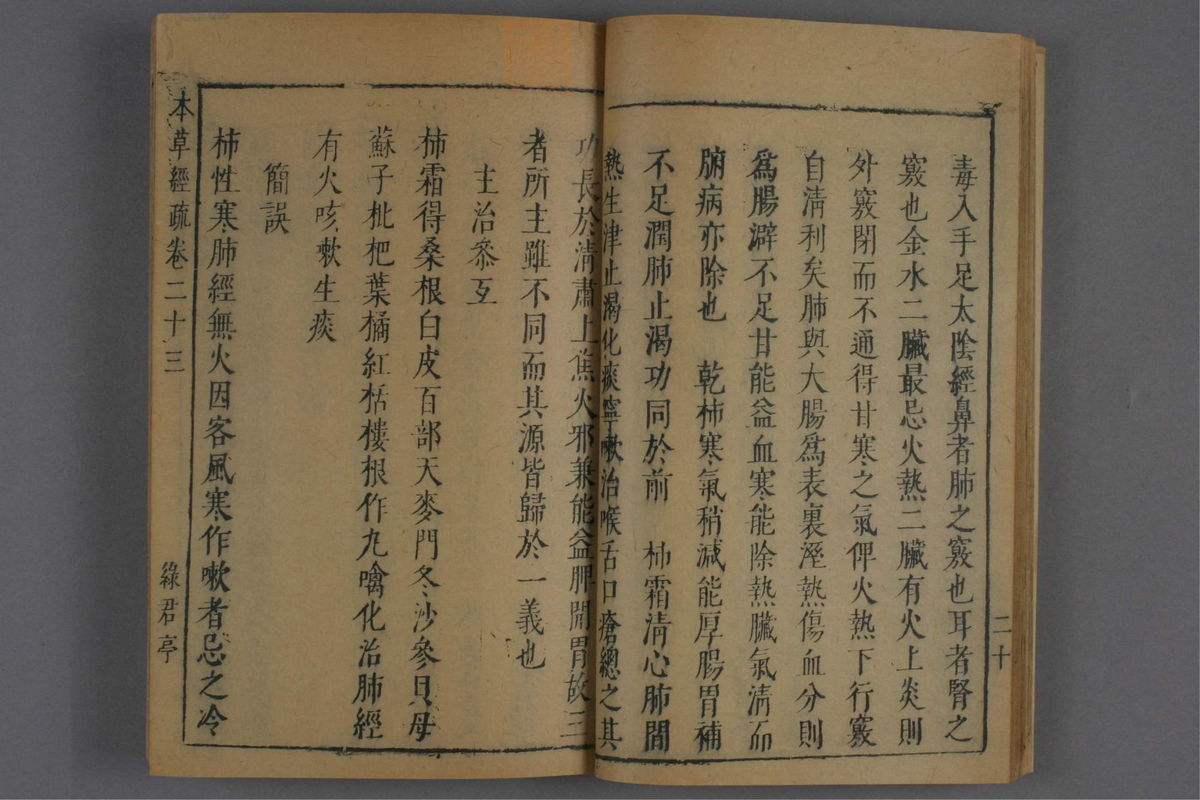 毒入手足太陰經鼻者肺之竅也耳者腎之
竅也金水二臟最忌火熱二臟有火上炎則
外竅閉而不通得甘寒之氣俾火熱下行竅
自清利矣肺與大腸爲表裏溼熱傷血分則
爲腸澼不足甘能益血寒能除熱臟氣清而
腑病亦除也 乾柿寒氣稍減能厚腸胃補
不足潤肺止渴功同於前 柿霜清心肺間
熱生津止渴化痰寧嗽治喉舌口瘡總之其
二十
功長於清肅上焦火邪兼能益脾開胃故三
者所主雖不同而其源皆歸於一義也
主治叅互
柿霜得桑根白皮百部天麥門冬沙參貝母
蘇子枇杷葉橘紅栝樓根作丸噙化治肺經
有火咳嗽生痰
簡誤
柿性寒肺經無火因客風寒作嗽者忌之冷
本草經疏卷二十三
綠君亭